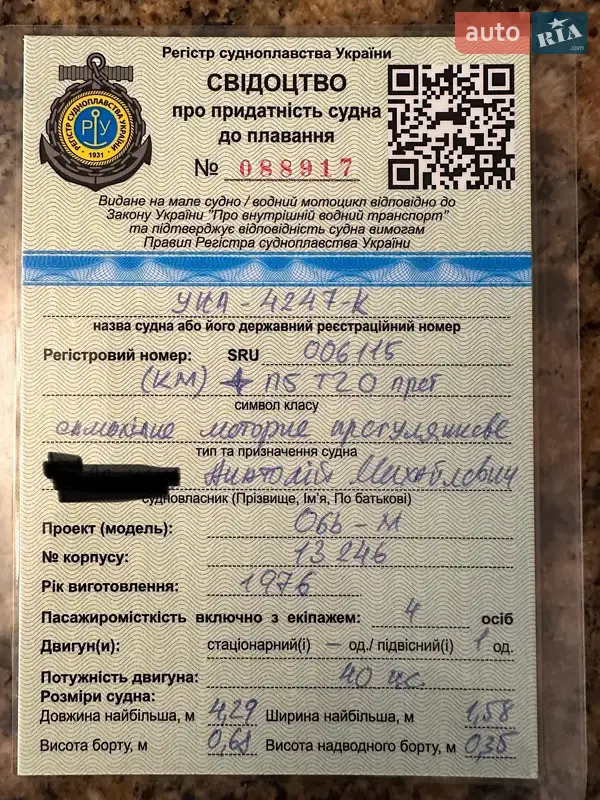 auto RIA .com
Регістр судноплавства України
СВІДОЦТВО
про придатність судна
до плавання
№ 088917
РЕГІСТР СУДНОПЛАВСТВА УКРАЇНИ
РУ
1931
Видане на мале судно / водний мотоцикл відповідно до
Закону України "Про внутрішній водний транспорт"
та підтверджує відповідність судна вимогам
Правил Регістра судноплавства України
УКА-4247-К
назва судна або його державний реєстраційний номер
Регістровий номер: SRU 006115
(КМ) П5 Т20 прот
символ класу
самохідне моторне прогулянкове
тип та призначення судна
Анатолій Михайлович
судновласник (Прізвище, Ім'я, По батькові)
Проект (модель): Обь-М
№ корпусу: 13246
Рік виготовлення: 1976
Пасажиромісткість включно з екіпажем: 4 осіб
Двигун(и): стаціонарний(і) — од./ підвісний(і) 1 од.
Потужність двигуна: 40
Розміри судна:
Довжина найбільша, м 4,29 Ширина найбільша, м 1,58
Висота борту, м 0,61 Висота надводного борту, м 0,35